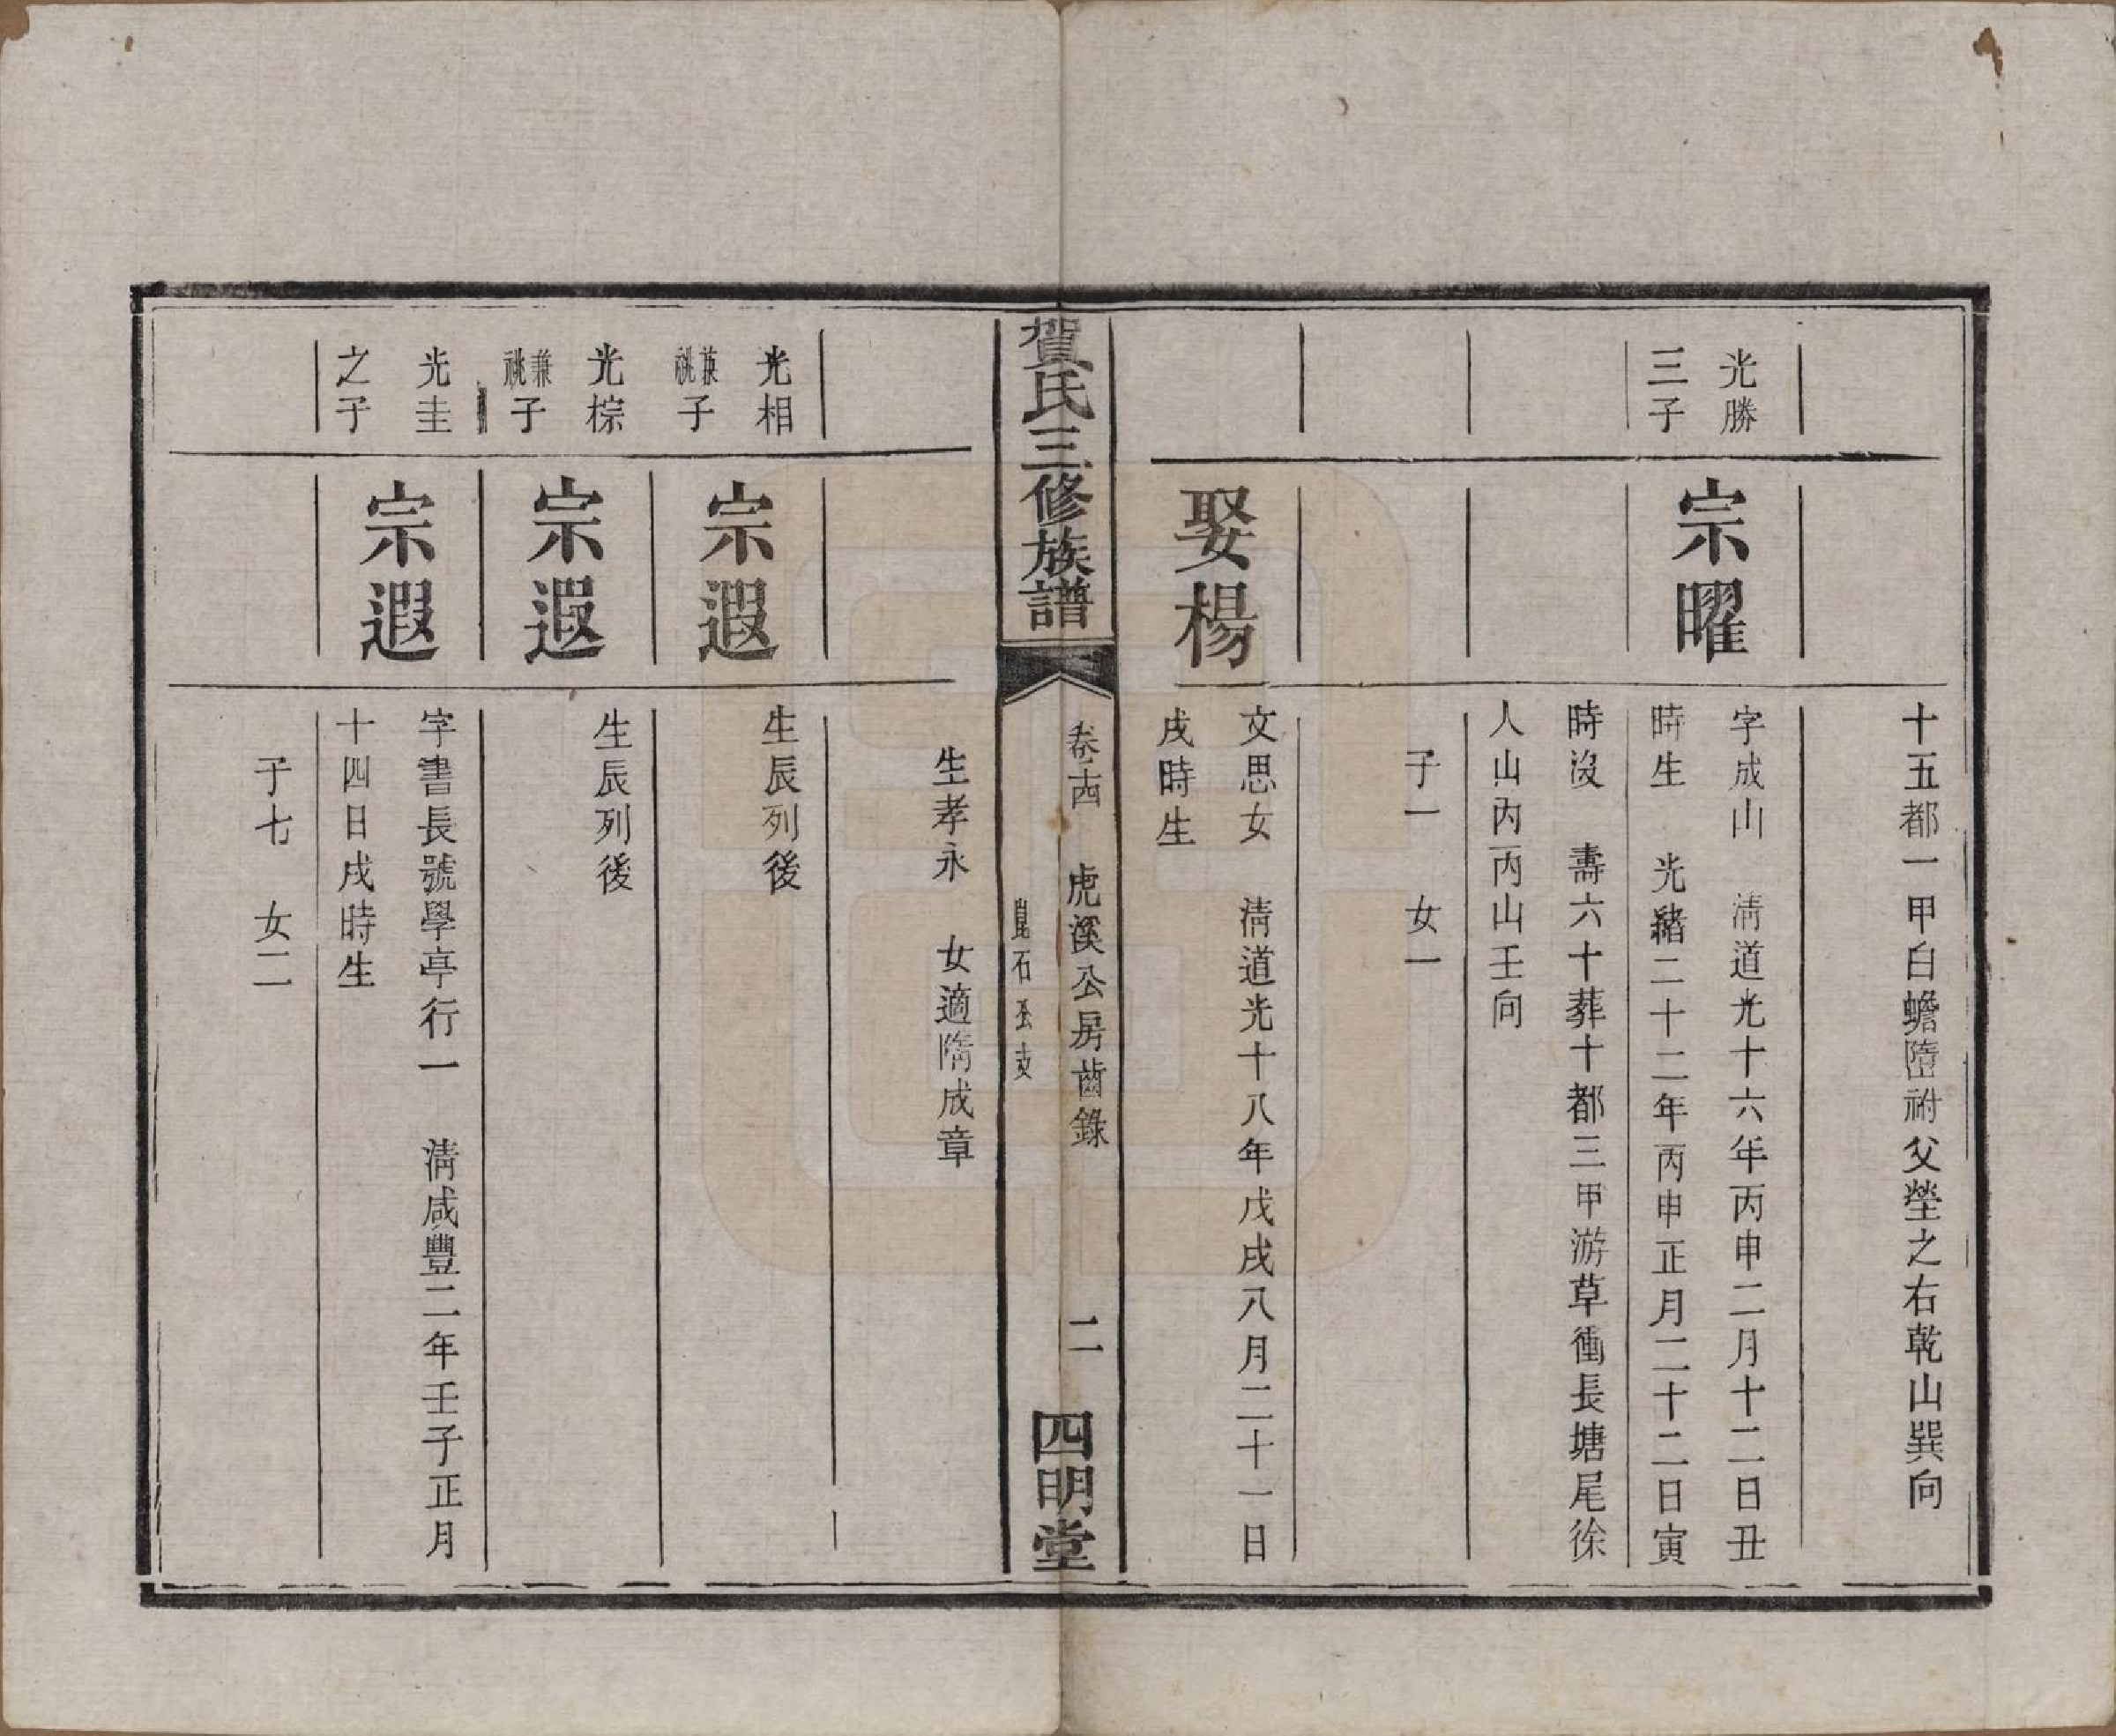 十五都一甲白蟾隨祔父塋之右乾山巽向
光勝
三子
宗曜
字成山　清道光十六年丙申二月十二日丑
時生　光緒二十二年丙申正月二十二日寅
時沒　壽六十葬十都三甲游草衝長塘尾徐
人山內丙山壬向
子一　女一
娶楊
文思女　清道光十八年戊戌八月二十一日
戌時生
賀氏三修族譜
卷十四　虎溪公房齒錄
崑石丞支
二
四明堂
生孝永　女適隋成章
光相
兼祧子
宗遐
生辰列後
光棕
兼祧子
宗遐
生辰列後
光圭
之子
宗遐
字書長號學亭行一　清咸豐二年壬子正月
十四日戌時生
子七　女二